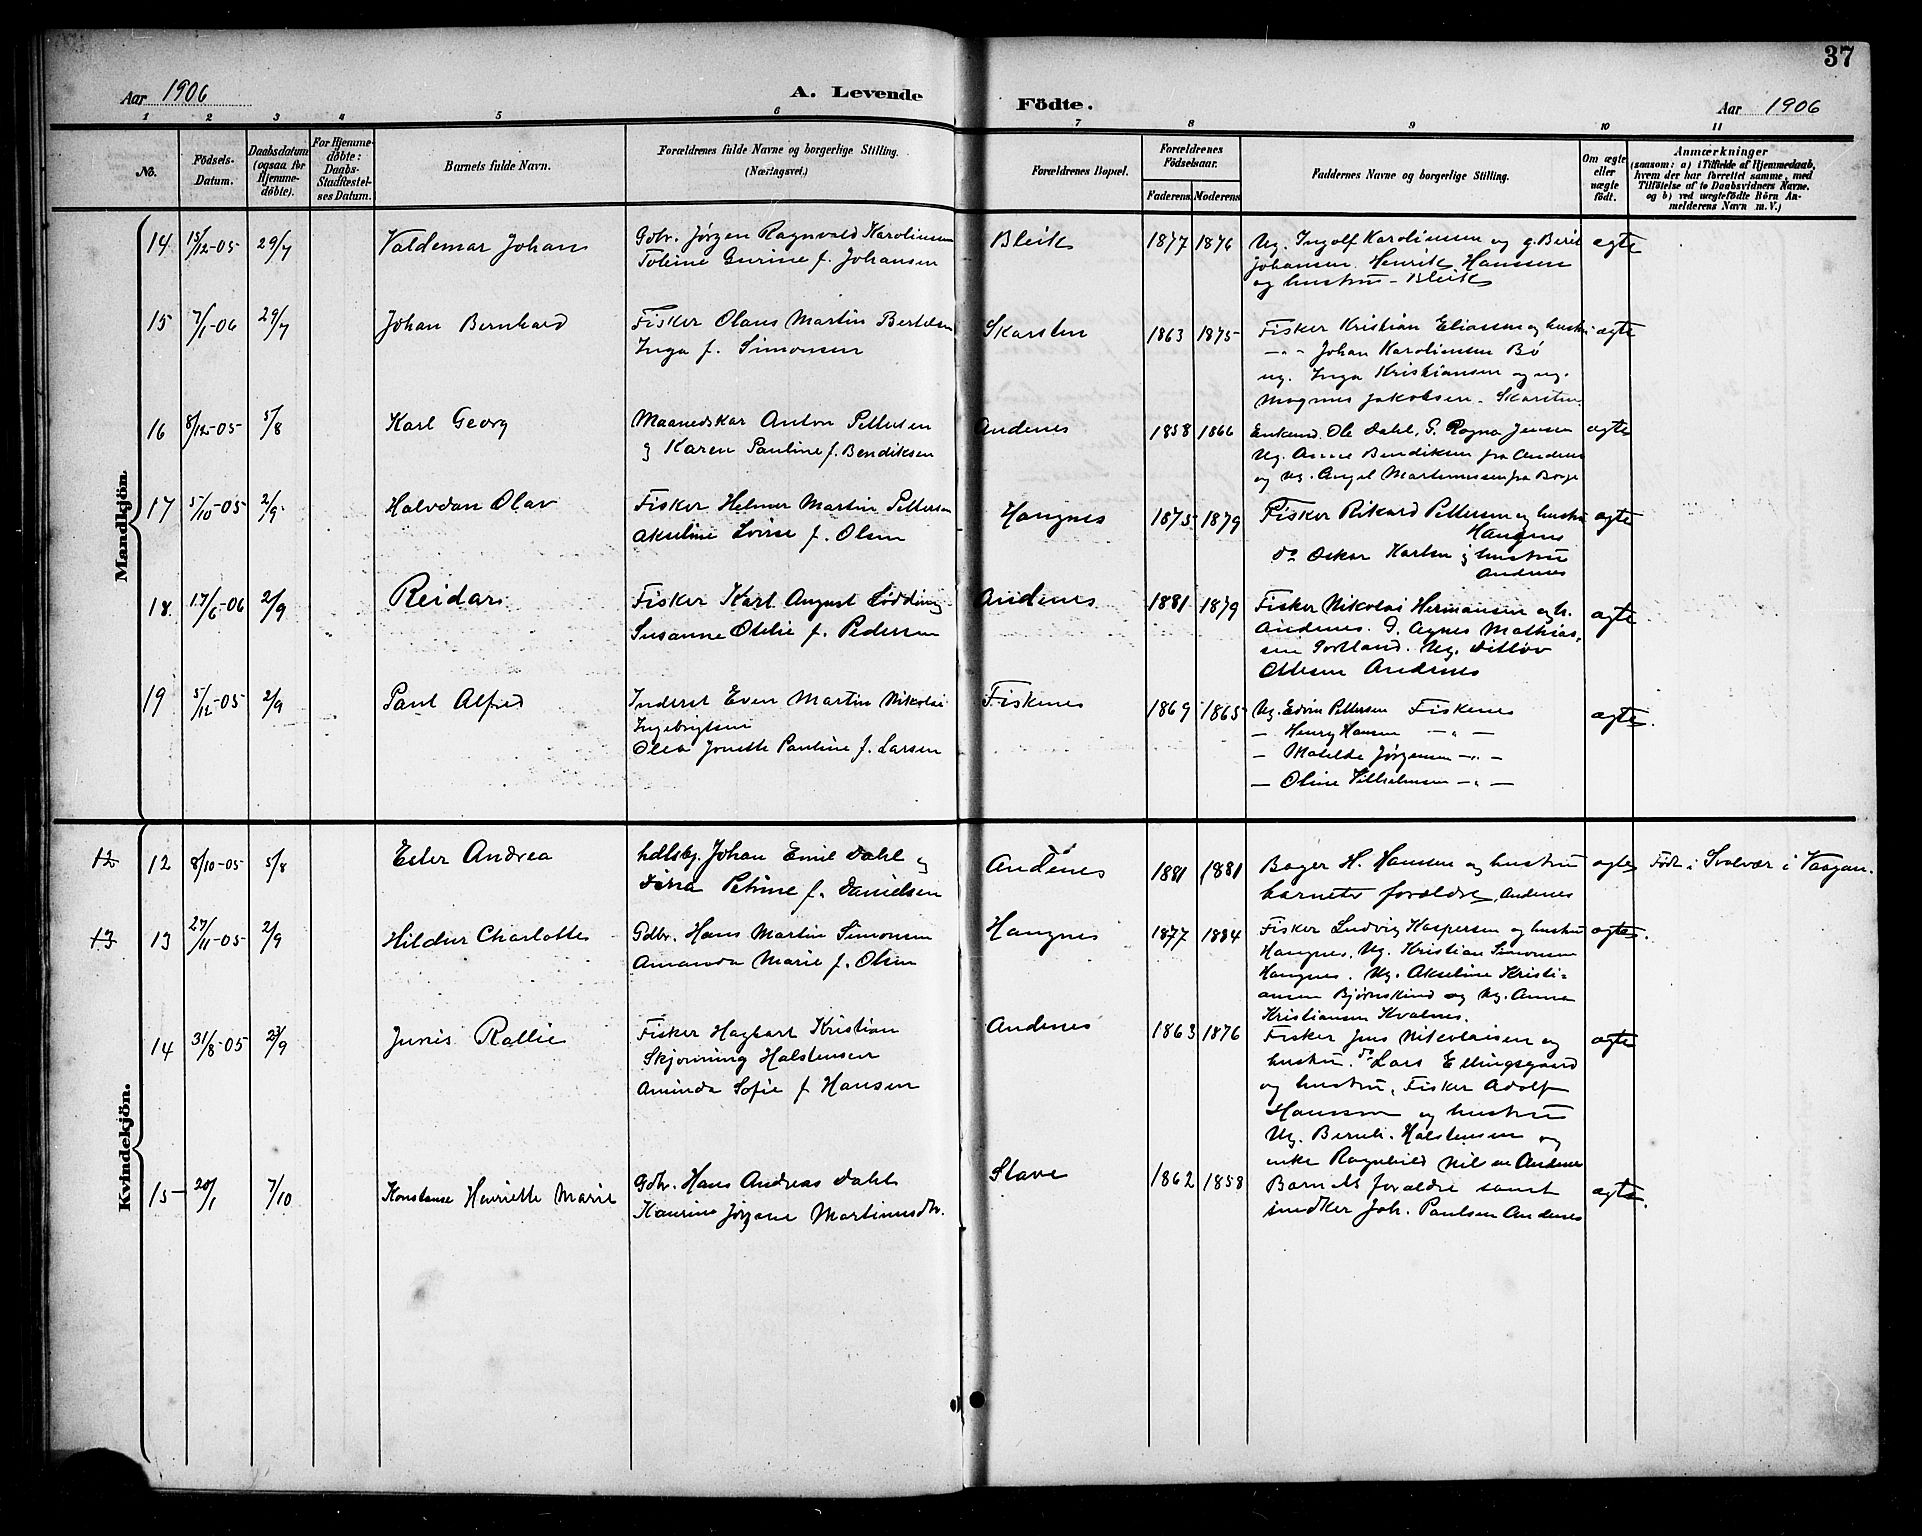 37
Aar 1906
A. Levende
Födte.
Aar 1906
1 2 3 4 5 6 7 8 9 10 11
No.
Födsels-
Datum.
Daabsdatum
(ogsaa for
Hjemme-
döbte).
For Hjemme-
döbte:
Daabs-
Stadfæstel-
ses Datum.
Barnets fulde Navn.
Forældrenes fulde Navne og borgerlige Stilling.
(Næringsvei.)
Forældrenes Bopæl.
Forældrenes
Födselsaar.
Faderens Moderens
Faddernes Navne og borgerlige Stilling.
Om ægte
eller
uægte
födt.
Anmærkninger
(saasom: a) i Tilfælde af Hjemmedaab,
hvem der har forrettet samme, med
Tilföielse af to Daabsvidners Navne.
og b) ved uægtefödte Börn An-
melderens Navn m. V.)
Mandkjön.
14 15/12-05 29/7 Valdemar Johan
Gdbr. Jørgen Ragnvald Karolinsen
Toline Gurine f. Johansen
Bleik 1877 1876
Ug. Ingolf Karolinsen og g. Berit
Johansen. Henrik Hansen
og hustru - Bleik
ægte
15 7/1-06 29/7 Johan Bernhard
Fisker Olaus Martin Bertelsen
Inga f. Simonsen
Skarsten 1863 1875
Fisker Kristian Eliassen og hustru
— " Johan Karolinsen Bø
ug. Inga Kristiansen og ug.
Magnus Jakobsen. Skarsten
ægte
16 8/12-05 5/8 Karl Georg
Maanedskar Anton Pettersen
og Karen Pauline f. Bendiksen
Andenes 1858 1866
Enkemd. Ole Dahl, G. Ragna Jensen
Ug. Anne Bendiksen fra Andenes
og ug. Angel Martinussen fra Borge
ægte
17 5/10-05 2/9 Halvdan Olav
Fisker Helmer Martin Pettersen
Akseline Lovise f. Olsen
Haugnes 1875 1879
Fisker Rikard Pettersen og hustru
Haugnes
do Oskar Karlsen og hustru
Andenes
ægte
18 17/6-06 2/9 Reidar
Fisker Karl August Lødding
Susanne Otelie f. Pedersen
Andenes 1881 1879
Fisker Nikolai Hermansen og h.
Andenes. G. Agnes Mathias-
sen Sortland. Ug. Ditlov
Ottesen Andenes
ægte
19 5/12-05 2/9 Paul Alfred
Inderst Even Martin Nikolai
Ingebrigtsen
Olea Jonette Pauline f. Larsen
Fiskenes 1869 1865
Ug. Edvin Pettersen Fiskenes
— Henry Hansen — " —
— Matelde Jørgensen — " —
— Oline Vilhelmsen — " —
ægte.
Kvindekjön.
12 12 8/10-05 5/8 Ester Andrea
hdlsbg. Johan Emil Dahl og
Petrine f. Danielsen
Andenes 1881 1881
Bager H. Hansen og hustru
barnets forældre, Andenes
ægte
Født i Svolvær i Vaagan.
13 13 27/11-05 2/9 Hildur Charlotte
Gdbr. Hans Martin Simonsen
Amanda Marie f. Olsen
Haugnes 1877 1884
Fisker Ludvig Kaspersen og hustru
Haugnes, Ug. Kristian Simonsen
Haugnes. Ug. Akseline Kristi-
ansen Bjørnskind og Ug. Anna
Kristiansen Kvalnes.
ægte.
14 31/8-05 23/9 Junis Rallie
Fisker Hagbart Kristian
Skjønning Halstensen
Aminda Sofie f. Hansen
Andenes 1863 1876
Fisker Jens Nikolaisen og
hustru. do Lars Ellingsgaard
og hustru, Fisker Adolf
Hansson og hustru
Ug. Bernh. Halstensen og
enke Ragnhild Andenes
ægte
15 20/1 7/10 Konstanse Henriette Marie
Gdbr. Hans Andreas Dahl
Kaurine Jørgine Martinusdtr.
Stave 1862 1858
Barnets forældre samt
snedker Joh. Paulsen Andenes
ægte.